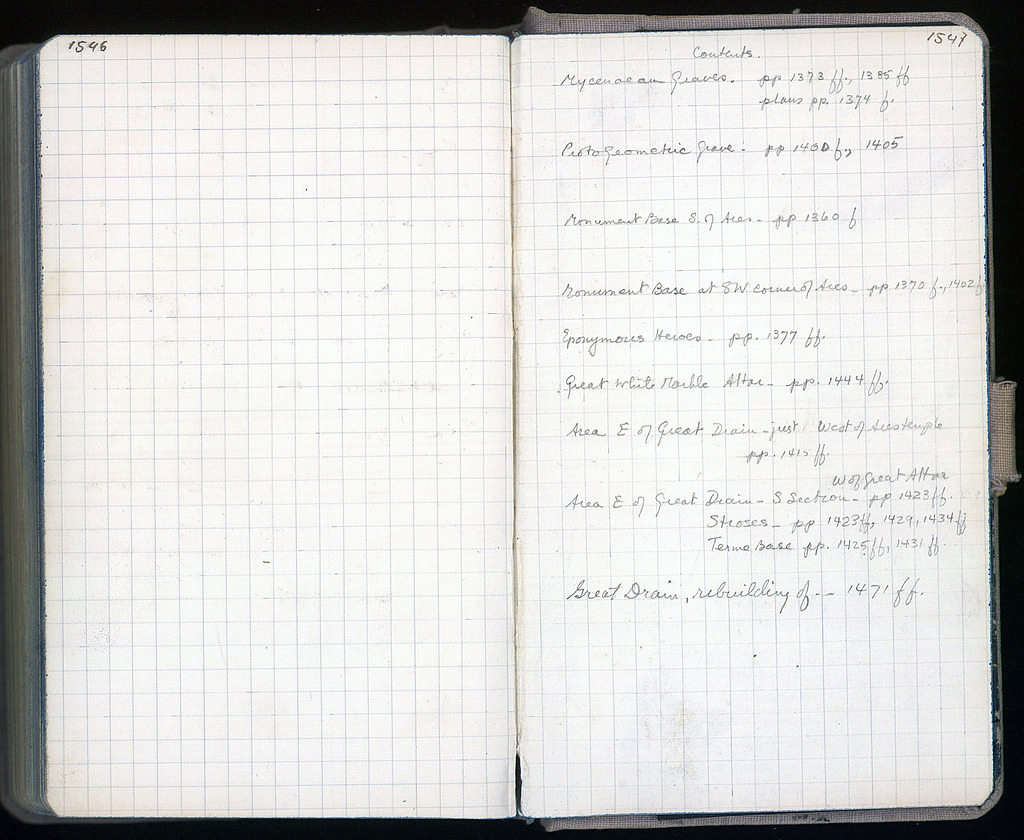 1546
1547
Contents.
Mycenaean Graves. pp 1373 ff., 1385 ff
plans pp. 1374 f.
ProtoGeometric Grave. pp 1400 f., 1405
Monument Base S. of Ares - pp 1360 f
Monument Base at SW corner of Ares - pp 1370 f., 1402 f
Eponymous Heroes - pp. 1377 ff.
Great White Marble Altar - pp. 1444 ff.
Area E of Great Drain - just West of Ares temple
pp. 1415 ff.
W of Great Altar
Area E of Great Drain - S Section - pp 1423 ff.
Stroses - pp 1423 ff, 1429, 1434 ff
Terme Base pp. 1425 ff, 1431 ff.
Great Drain, rebuilding of -- 1471 ff.